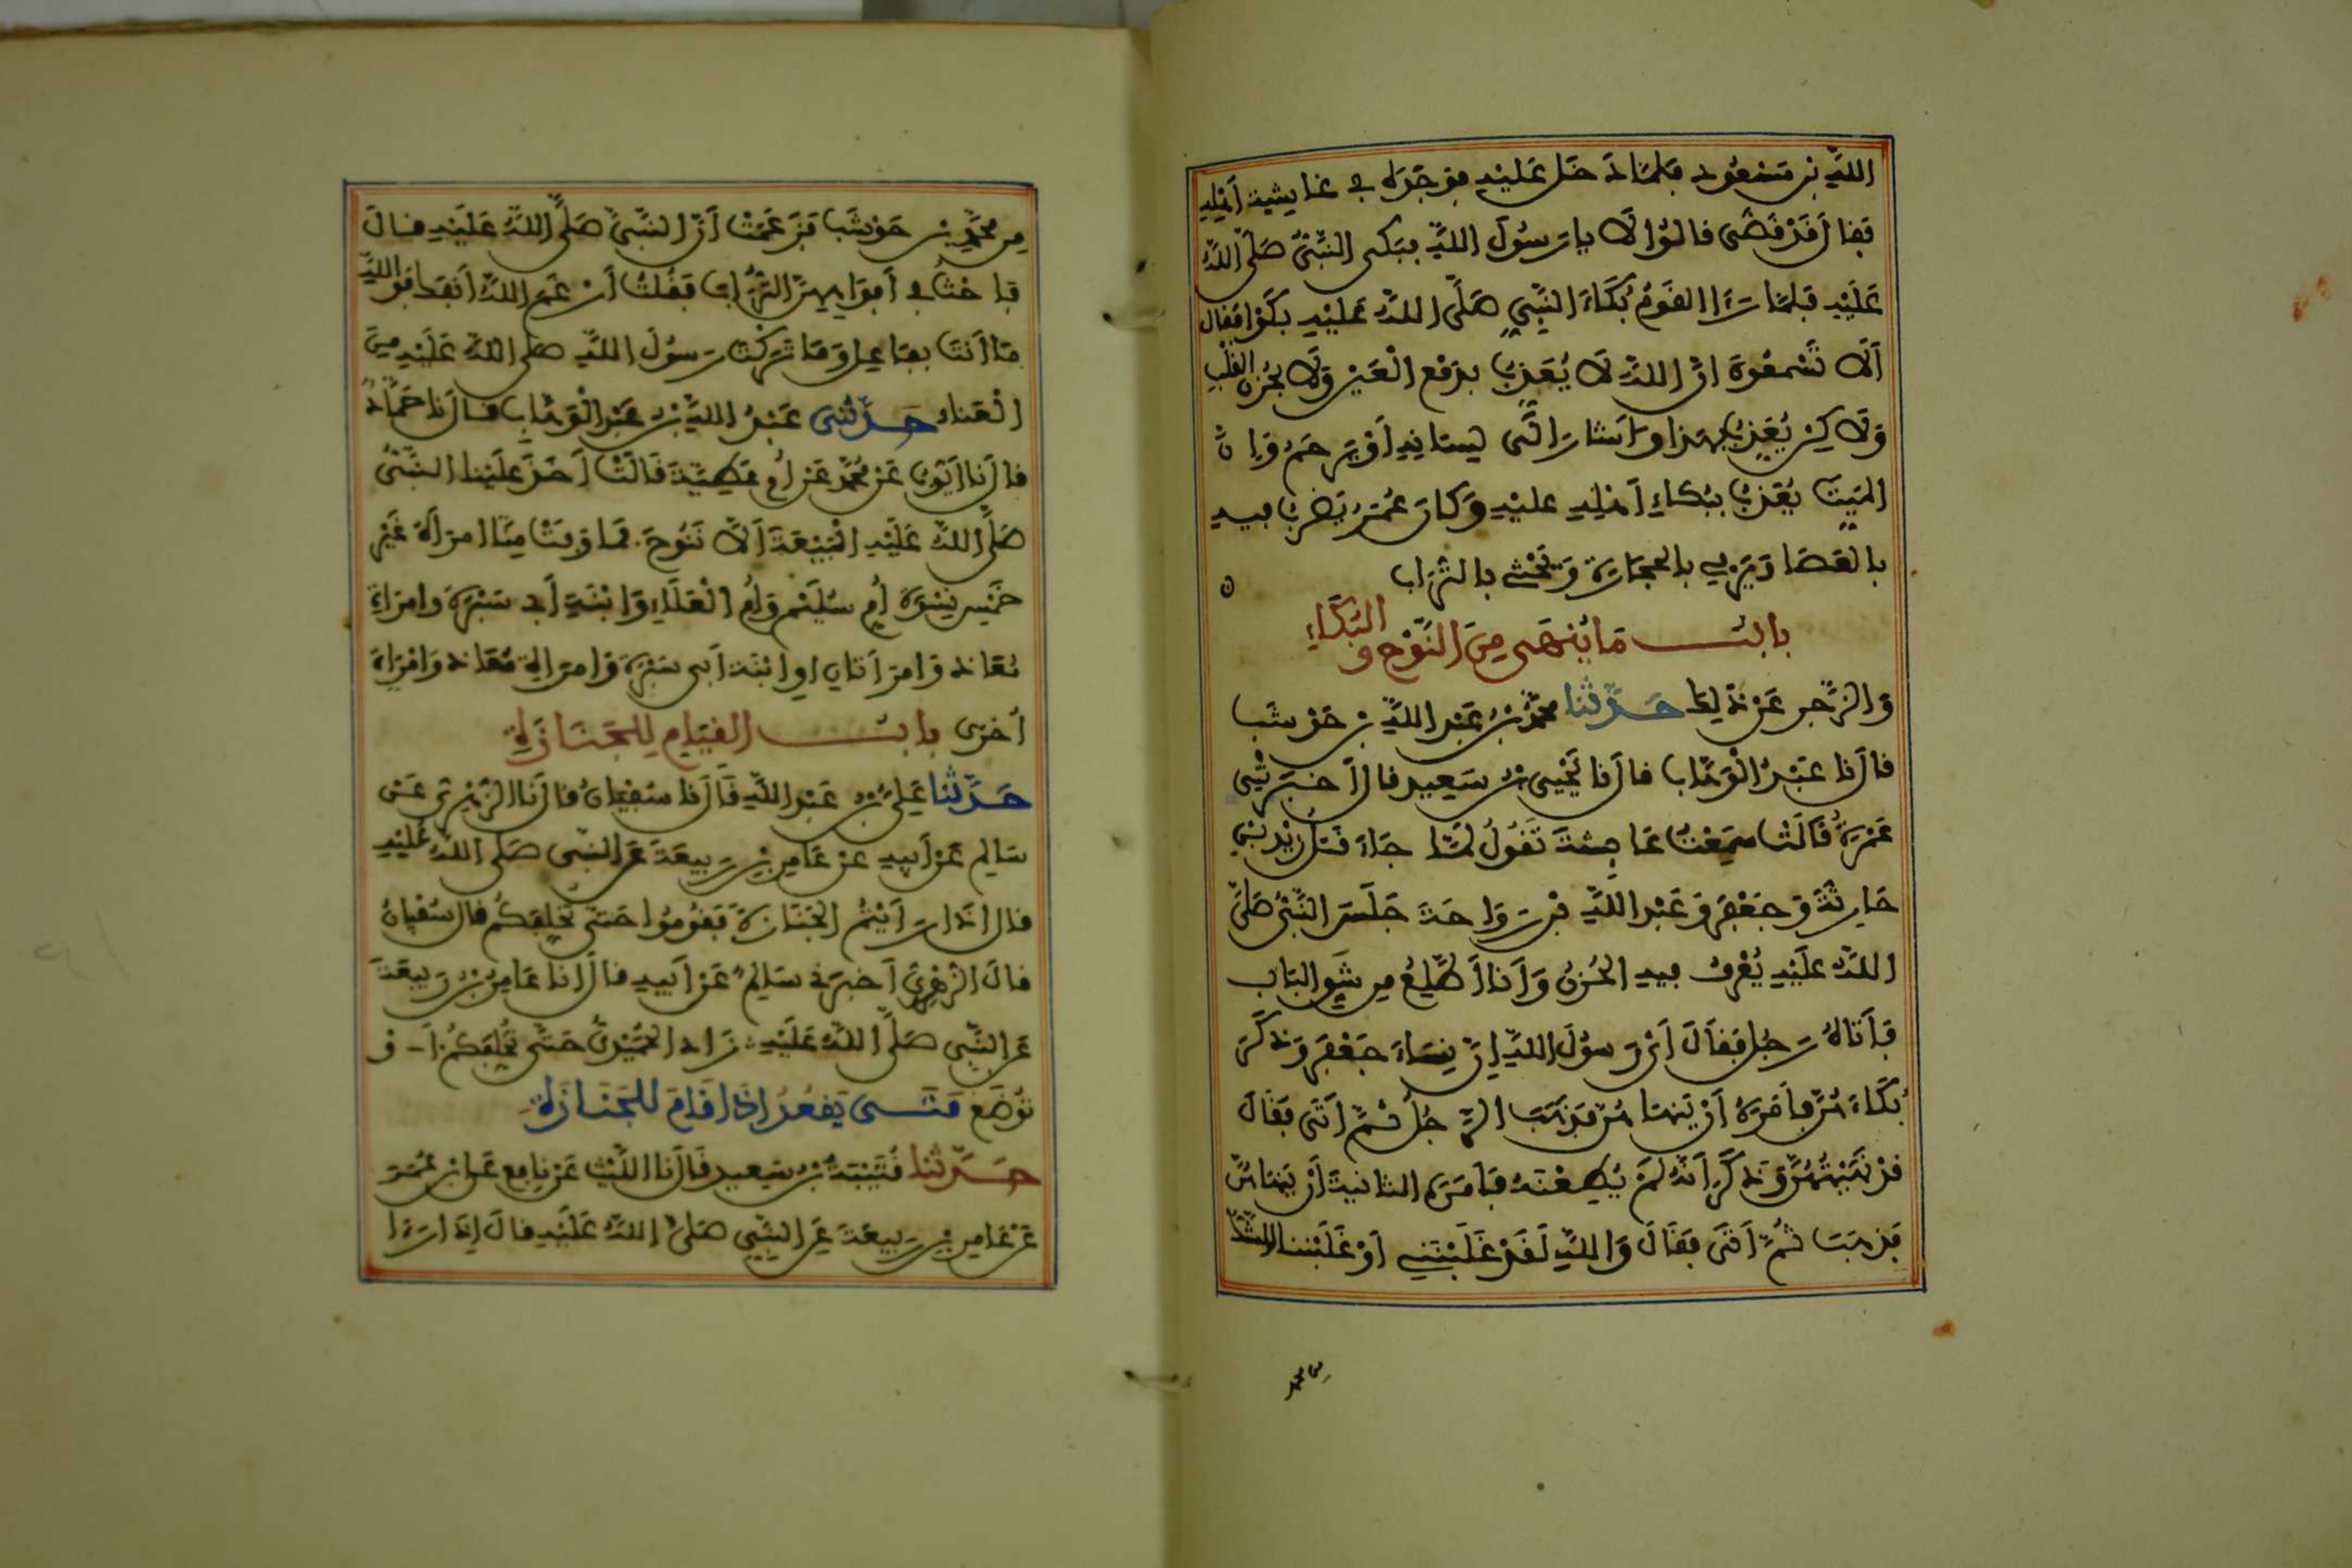 اللَّهِ بن مَسْعُود فلمّا دَخَل عَليْهِ فوَجَدَه في غَاشِية أهْلِهِ
فقال قَدْ قَضَى قالوا لا يا رَسُولَ اللَّهِ فبَكى النَّبيُّ صَلَّى اللَّهُ
عَلَيْهِ فلمّا رَءَا القَوْمُ بُكَاءَ النَّبِيِّ صَلَّى اللَّهُ عَلَيْهِ بَكَوْا فقال
ألَا تَسْمَعُونَ إنَّ اللَّهَ لَا يُعَذِّبُ بِدَمْعِ الْعَيْنِ وَلَا بِحُزْنِ القَلْبِ
وَلَاكِنْ يُعَذِّبُ بِهَذا وأشَارَ إلَى لِسَانِهِ أوْ يَرْحَمُ وَإنَّ
المَيِّتَ يُعَذَّبُ بِبُكاءِ أهْلِهِ عليْهِ وَكانَ عُمَرُ يَضْرِبُ فيهِ
بالعَصَا وَيَرْمِي بِالحِجَارَةِ وَيَحْثِي بالتُّرَاب
بابُ مَا يُنْهَى مِنَ النَّوْحِ وَالبُكَاءِ
وَالزَّجْرِ عَنْ ذَلِكَ حَدَّثنا محمَّدُ بْنُ عَبْدِ اللَّهِ بْنِ حَوْشَب
قال نا عَبْدُ الْوَهَّاب قال نا يَحْيَى بْنُ سَعِيد قال أخْبَرَتْنِي
عَمْرَةُ قَالَتْ سَمِعْتُ عَائِشَةَ تَقُولُ لَمَّا جَاءَ قَتْلُ زَيْدِ بْنِ
حَارِثَةَ وَجَعْفَرٍ وَعَبْدِ اللَّهِ بْنِ رَوَاحَةَ جَلَسَ النَّبِيُّ صَلَّى
اللَّهُ عَلَيْهِ يُعْرَفُ فِيهِ الحُزْنُ وَأنَا أطَّلِعُ مِن شَقِّ البَاب
فَأتَاهُ رَجُل فَقَالَ أيْ رَسُولَ اللَّهِ إنَّ نِسَاءَ جَعْفَر وَذَكَرَ
بُكَاءَهُنَّ فأمَرَهُ أنْ يَنْهَاهُنَّ فَذَهَبَ الرَّجُلُ ثُمَّ أتَى فَقَالَ
قَدْ نَهَيْتُهُنَّ وَذَكَرَ أنَّهُ لَمْ يُطِعْنَهُ فَأمَرَهُ الثانيةَ أنْ يَنْهَاهُنَّ
فَذَهَبَ ثُمَّ أتَى فَقَالَ وَاللَّهِ لَقَدْ غَلَبْنَنِي أوْ غَلَبْنَنَا الشَّكُّ
مِن محمَّدِ بْنِ حَوْشَب فَزَعَمَتْ أنَّ النَّبِيَّ صَلَّى اللَّهُ عَلَيْهِ قالَ
فاحْثُ في أفْوَاهِهِنَّ التُّرَابَ فَقُلْتُ أرْغَمَ اللَّهُ أنْفَكَ فَوَاللَّهِ
مَا أنْتَ بِفَاعِل وَمَا تَرَكْتَ رَسُولَ اللَّهِ صَلَّى اللَّهُ عَلَيْهِ مِنَ
الْعَنَاءِ حَدَّثَنِي عَبْدُ اللَّهِ بْنُ عَبْدِ الْوَهَّابِ قال نا حَمَّاد
قال نا أيُّوب عَنْ مُحَمَّد عَنْ أمِّ عَطِيَّةَ قَالَتْ أخَذَ عَلَيْنا النَّبِيُّ
صَلَّى اللَّهُ عَلَيْهِ الْبَيْعَةَ ألَّا نَنُوحَ فَمَا وَفَتْ مِنَّا امْرَأة غَيْر
خَمْس نِسْوَة أُم سُلَيْم وَأُم الْعَلَاءِ وَابْنَةِ أبي سَبْرَةَ وامْرَأةِ
مُعَاذ وَامْرَأتَانِ أو ابْنَة أبي سَبْرَةَ وَامْرَأة مُعَاذ وَامْرَأة
أخْرَى بابُ القِيَامِ لِلجَنَازَةِ
حَدَّثنا عَلِيُّ بْنُ عَبْدِ اللَّهِ قال نا سُفْيَانُ قال نا الزُّهْرِي عَنْ
سَالِم عَنْ أبِيهِ عَنْ عَامِرِ بْنِ رَبِيعَةَ عَنِ النَّبِي صَلَّى اللَّهُ عَلَيْهِ
قال إذَا رَأيْتُمُ الجَنَازَةَ فَقُومُوا حَتَّى تُخَلِّفَكُم قال سُفْيَانُ
قالَ الزُّهْرِيُّ أخْبَرَنِي سَالِمٌ عَنْ أبِيهِ قال أنا عَامِرُ بْنُ رَبِيعَةَ
عَنِ النَّبِي صَلَّى اللَّهُ عَلَيْهِ زَادَ الحُمَيْدِيُّ حَتَّى تُخَلِّفَكُمْ أو
تُوضَعَ مَتَى يَقْعُدُ إذَا قَامَ لِلجَنَازَةِ
حَدَّثنا قُتَيْبَةُ بْنُ سَعِيد قال نا اللَّيْث عَنْ نَافِع عَنِ ابْنِ عُمَرَ
عَنْ عَامِرِ بْنِ رَبِيعَةَ عَنِ النَّبِيِّ صَلَّى اللَّهُ عَلَيْهِ قالَ إذَا رَءَا